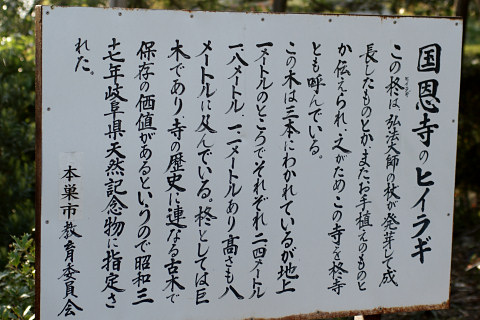 国恩寺のヒイラギ
この柊は、弘法大師の杖が発芽して成
長したものとか、またお手植えのものと
か伝えられ、えがためこの寺を柊寺
とも呼んでいる。
この木は三本にわかれているが地上
一メートルのところでそれぞれ二・四メートル
一・八メートル、一・二メートルあり高さも八
メートルに及んでいる。柊としては巨
木であり、寺の歴史に連なる古木で
保存の価値があるというので昭和三
十七年岐阜県天然記念物に指定さ
れた。
本巣市教育委員会